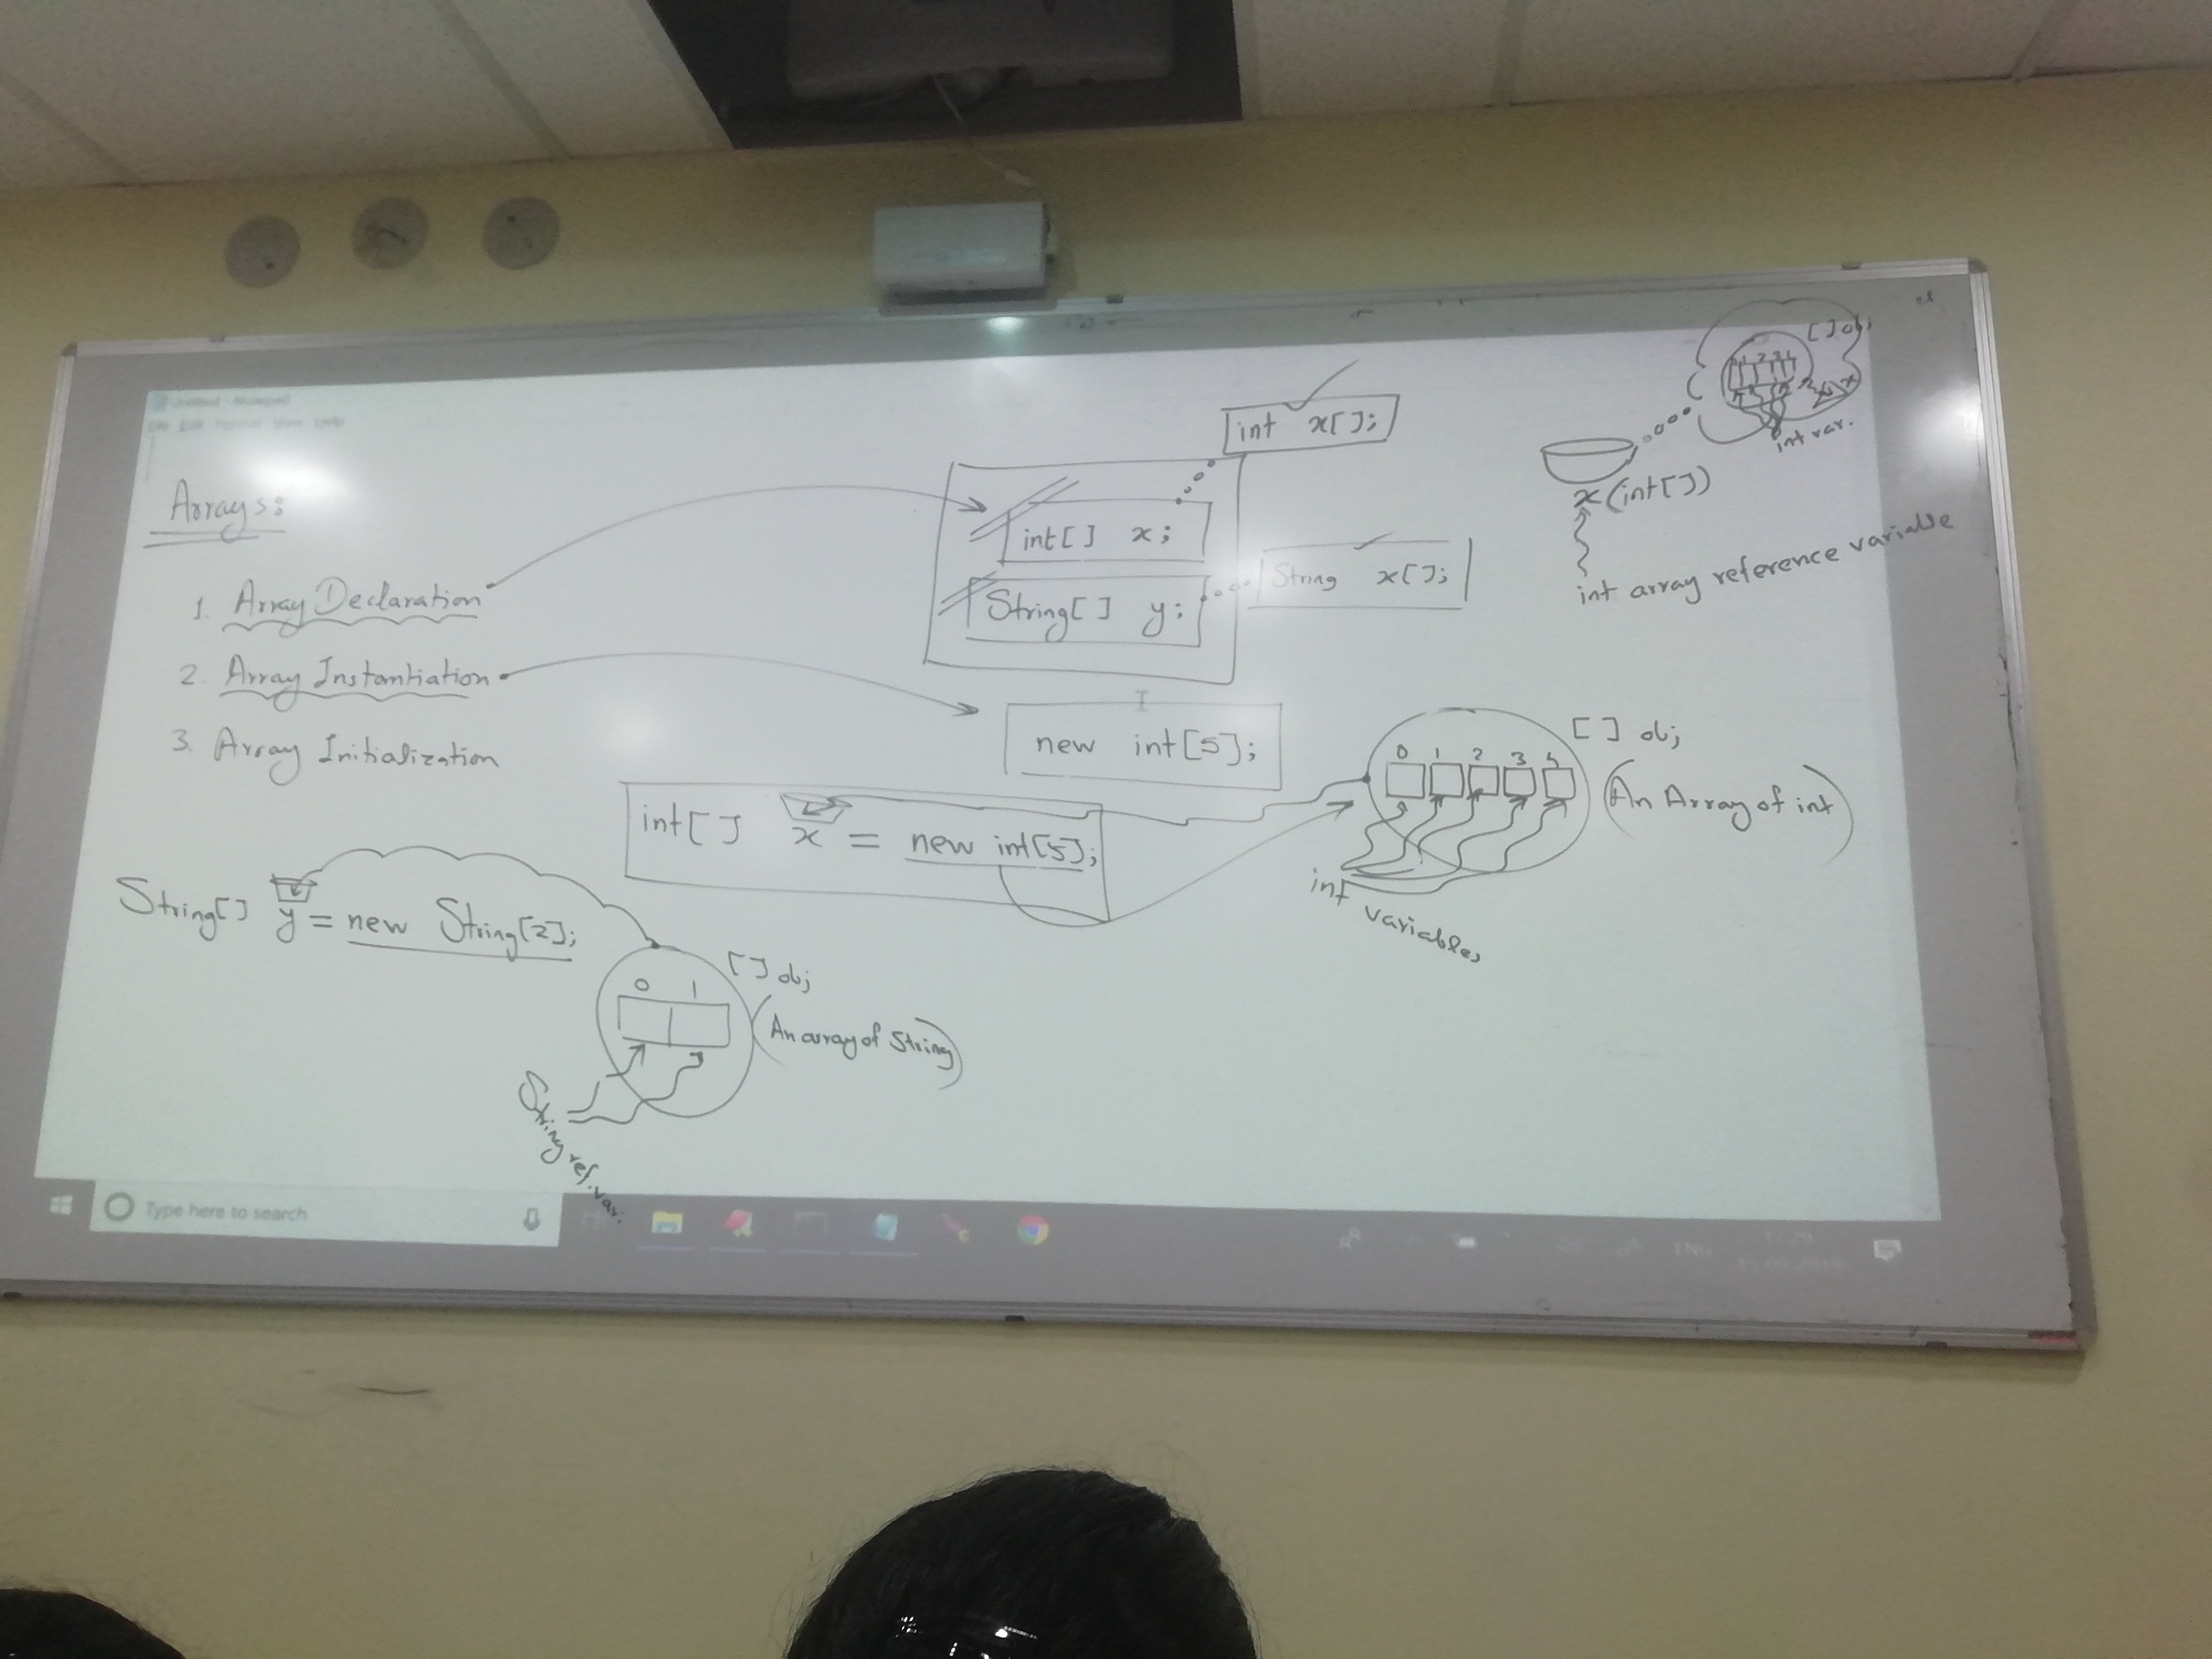 Untitled - Notepad
File Edit Format View Help
Arrays:
1. Array Declaration
2. Array Instantiation
3. Array Initialization
int x[];
int[] x;
String[] y;
String x[];
[] obj
0 1 2 3 4
int var.
x (int[])
int array reference variable
new int[5];
[] obj
0 1 2 3 4
(An Array of int)
int variables
int[] x = new int[5];
String[] y = new String[2];
[] obj
0 1
(An array of String)
String ref. var.
Type here to search
ENG